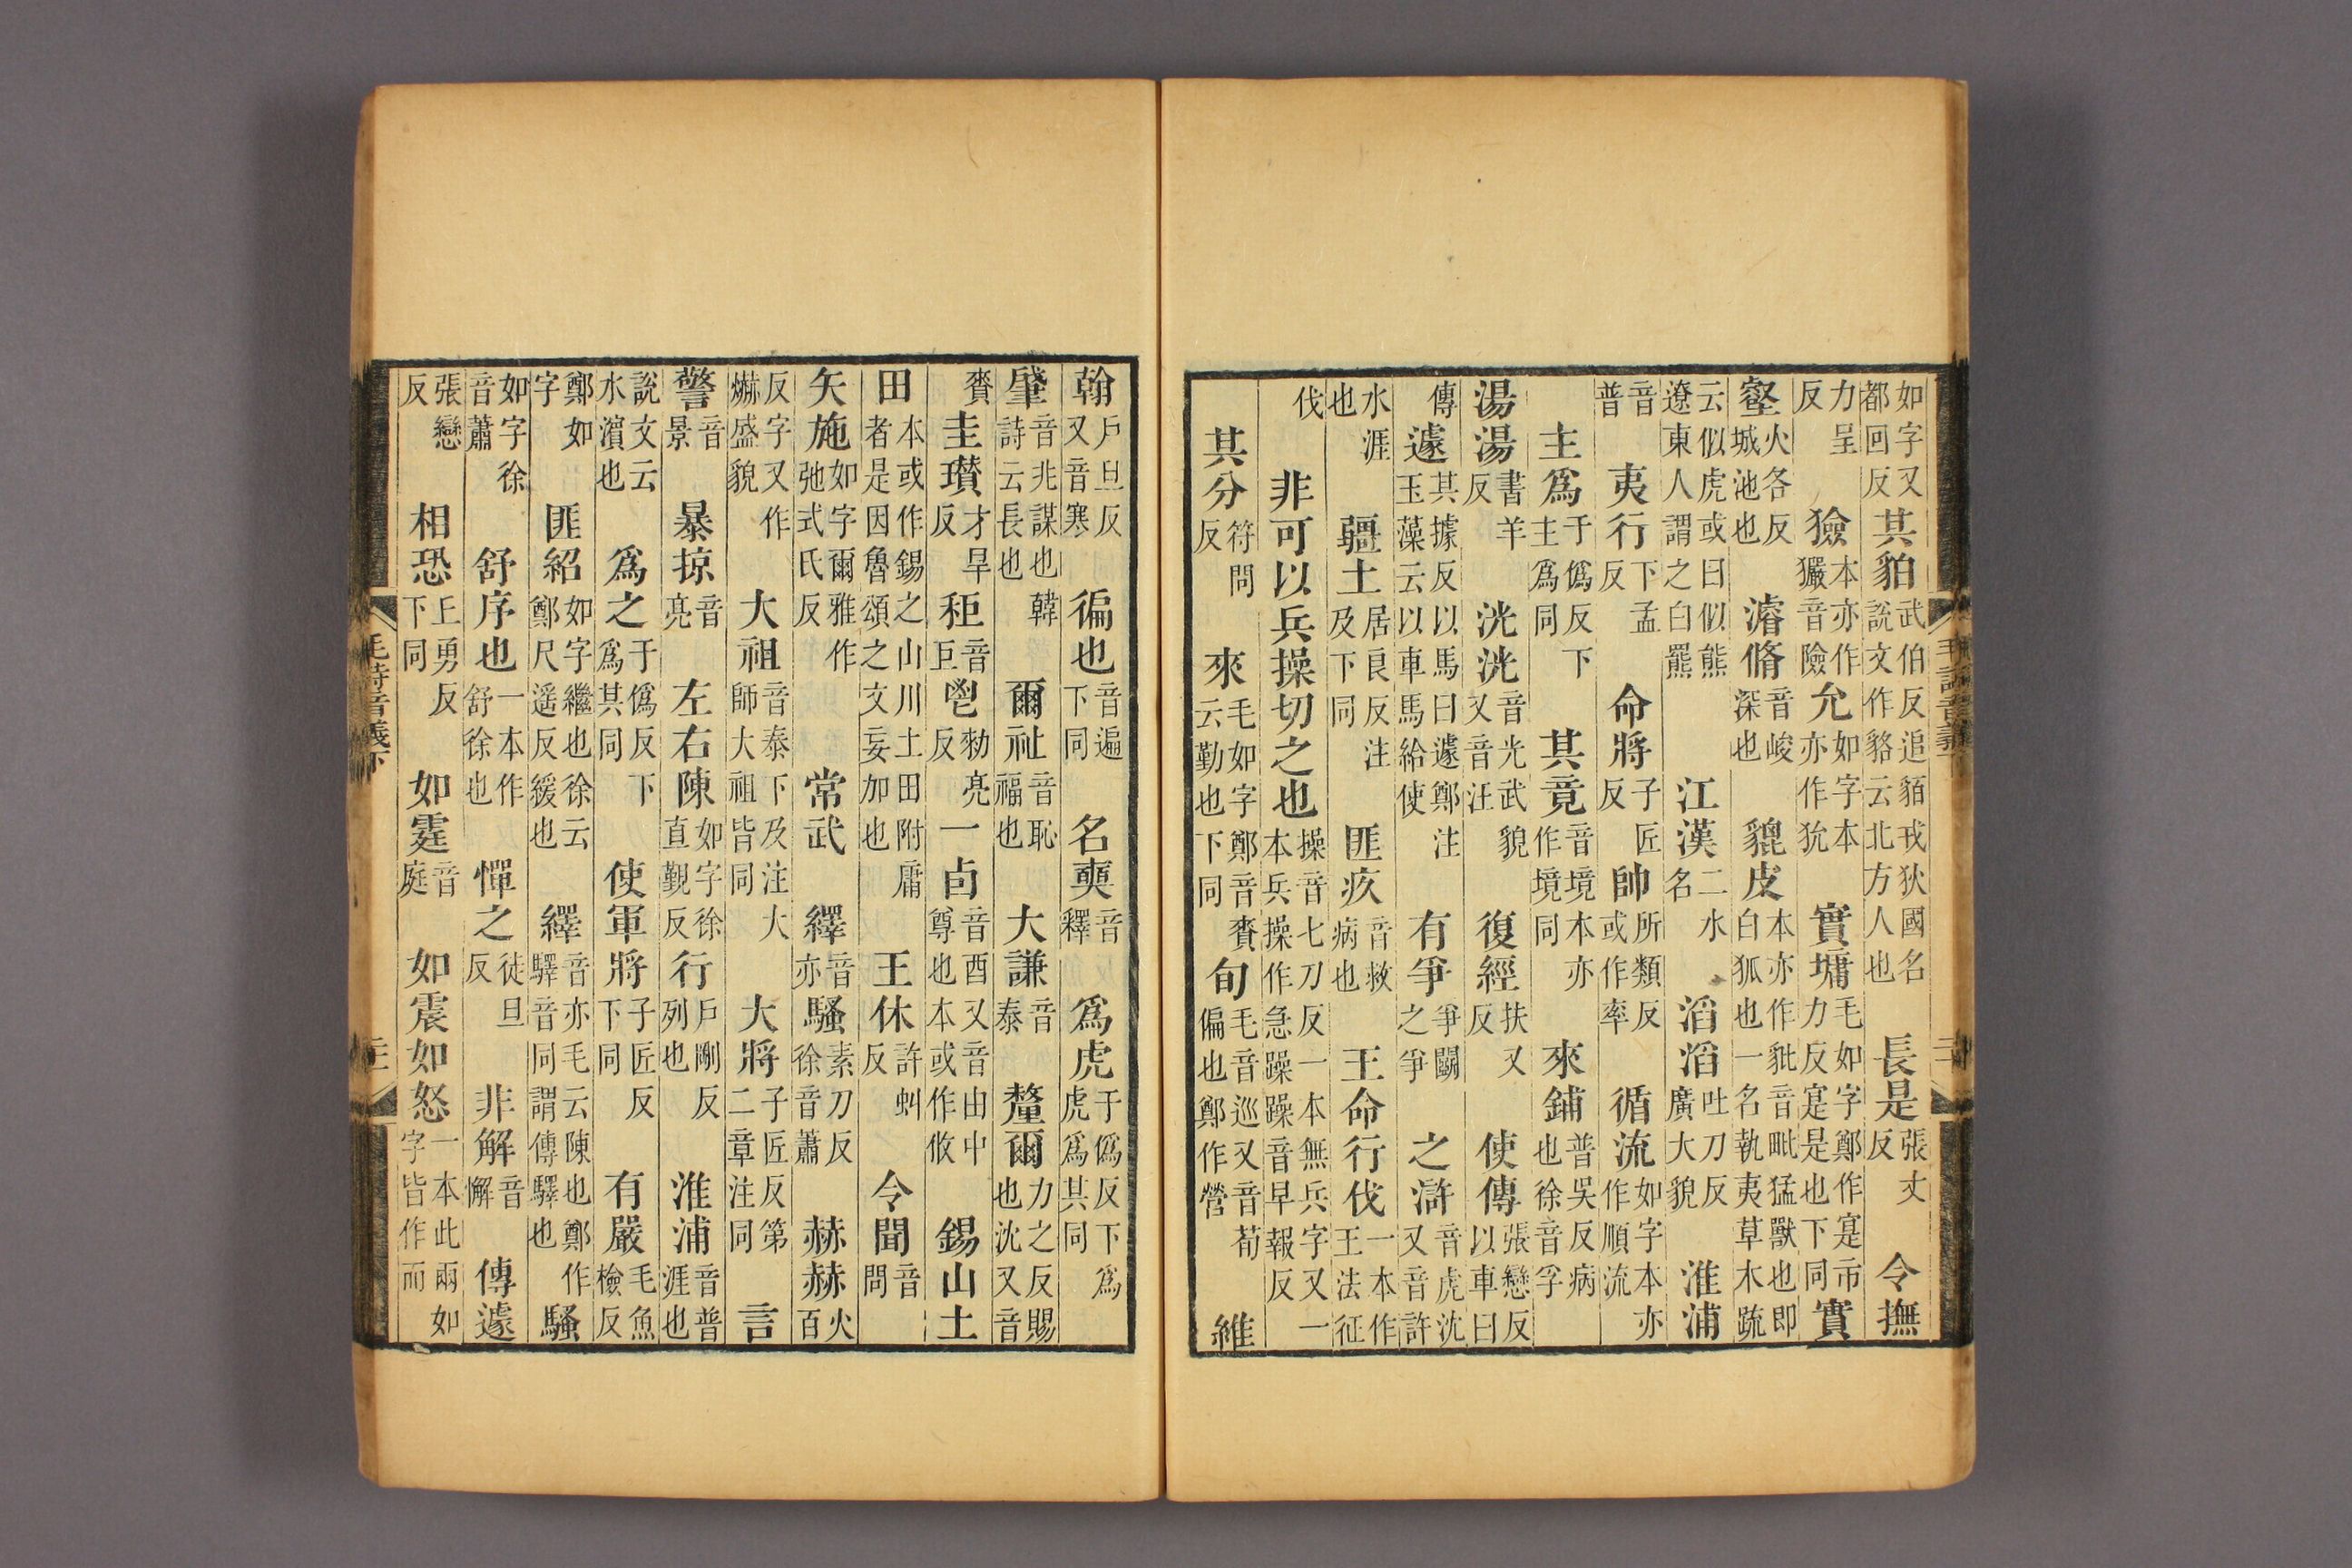 如字又都回反其貊武伯反追貊戎狄國名說文作貉云北方人也長是張丈反令撫
力呈反獫本亦作玁音險允如字本亦作狁實墉毛如字鄭作寔市力反寔是也下同實
壑火各反城池也濬脩音峻深也貔皮本亦作豼音毗猛獸也即白狐也一名執夷草木疏
云似虎或曰似熊遼東人謂之白羆江漢二水名滔滔吐刀反廣大貌淮浦
音普夷行下孟反命將子匠反帥所類反或作率循流如字本亦作順流
主爲于僞反下主爲同其竟音境本亦作境同來鋪普吳反病也徐音孚
湯湯書羊反洸洸音光武貌又音汪復經扶又反使傳張戀反以車曰
傳遽其據反以馬曰遽鄭注玉藻云以車馬給使有爭爭鬭之爭之滸音虎沈又音許
水涯也疆土居良反注及下同匪疚音救病也王命行伐一本作王法征
伐非可以兵操切之也操音七刀反一本無兵字又一本兵操作急躁躁音早報反
其分符問反來毛如字鄭音賚云勤也下同旬毛音巡又音荀偏也鄭作營維
毛詩音義下
翰戶旦反又音寒徧也音遍下同名奭音釋爲虎于僞反下爲虎爲其同
肇音兆謀也韓詩云長也爾祉音恥福也大謙音泰釐爾力之反賜也沈又音
賚圭瓚才旱反秬音巨鬯勑亮反一卣音酉又音由中尊也本或作攸錫山土
田本或作錫之山川土田附庸者是因魯頌之文妄加也王休許虯反令聞音問
矢施如字爾雅作弛式氏反常武繹音亦騷素刀反徐音蕭赫赫火百
反字又作爀盛貌大祖音泰下及注大師大祖皆同大將子匠反第二章注同言
警音景暴掠音亮左右陳如字徐直覲反行戶剛反列也淮浦音普涯也
說文云水濱也爲之于僞反下爲其同使軍將子匠反下同有嚴毛魚檢反
鄭如字匪紹如字繼也徐云鄭尺遥反緩也繹音亦毛云陳也鄭作驛音同謂傳驛也騷
如字徐音蕭舒序也一本作舒徐也憚之徒旦反非解音懈傳遽
張戀反相恐丘勇反下同如霆音庭如震如怒一本此兩如字皆作而
毛詩音義下